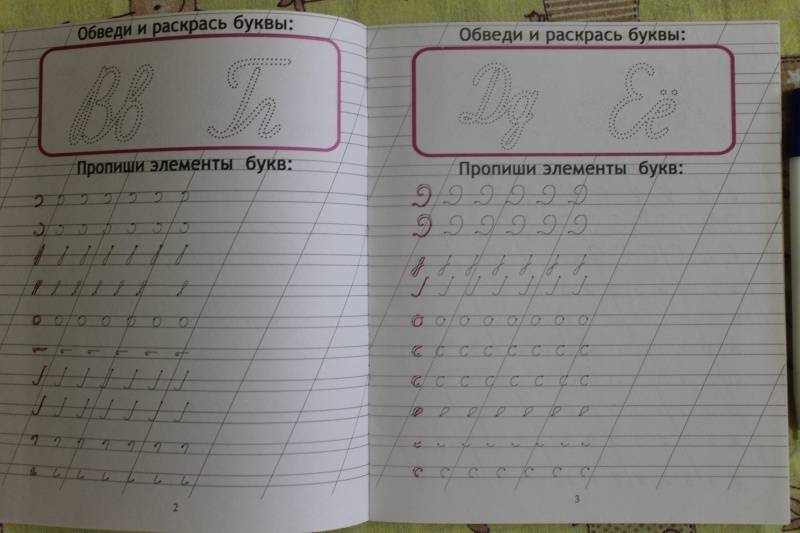 Обведи и раскрась буквы:
Вв Гг
Пропиши элементы букв:
2
Обведи и раскрась буквы:
Дд Её
Пропиши элементы букв:
3